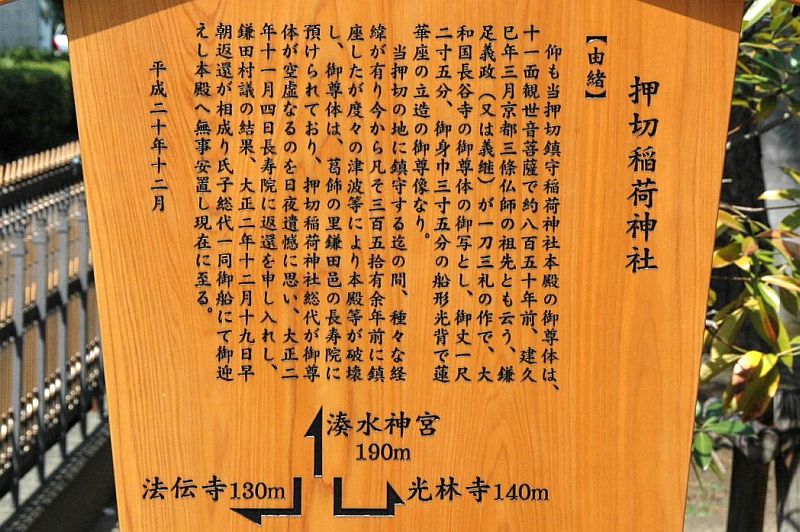 押切稲荷神社
【由緒】
仰も当押切鎮守稲荷神社本殿の御尊体は、
十一面観世音菩薩で約八百五十年前、建久
巳年三月京都三條仏師の祖先とも云う、鎌
足義政（又は義継）が一刀三札の作で、大
和国長谷寺の御尊体の御写とし、御丈一尺
二寸五分、御身巾三寸五分の船形光背で蓮
華座の立造の御尊像なり。
当押切の地に鎮守する迄の間、種々な経
緯が有り今から凡そ三百五拾有余年前に鎮
座したが度々の津波等により本殿等が破壊
し、御尊体は、葛飾の里鎌田邑の長寿院に
預けられており、押切稲荷神社総代が御尊
体が空虚なるのを日夜遺憾に思い、大正二
年十一月四日長寿院に返還を申し入れし、
鎌田村議の結果、大正二年十二月十九日早
朝返還が相成り氏子総代一同御船にて御迎
えし本殿へ無事安置し現在に至る。
平成二十年十二月
湊水神宮
190m
法伝寺130m
光林寺140m